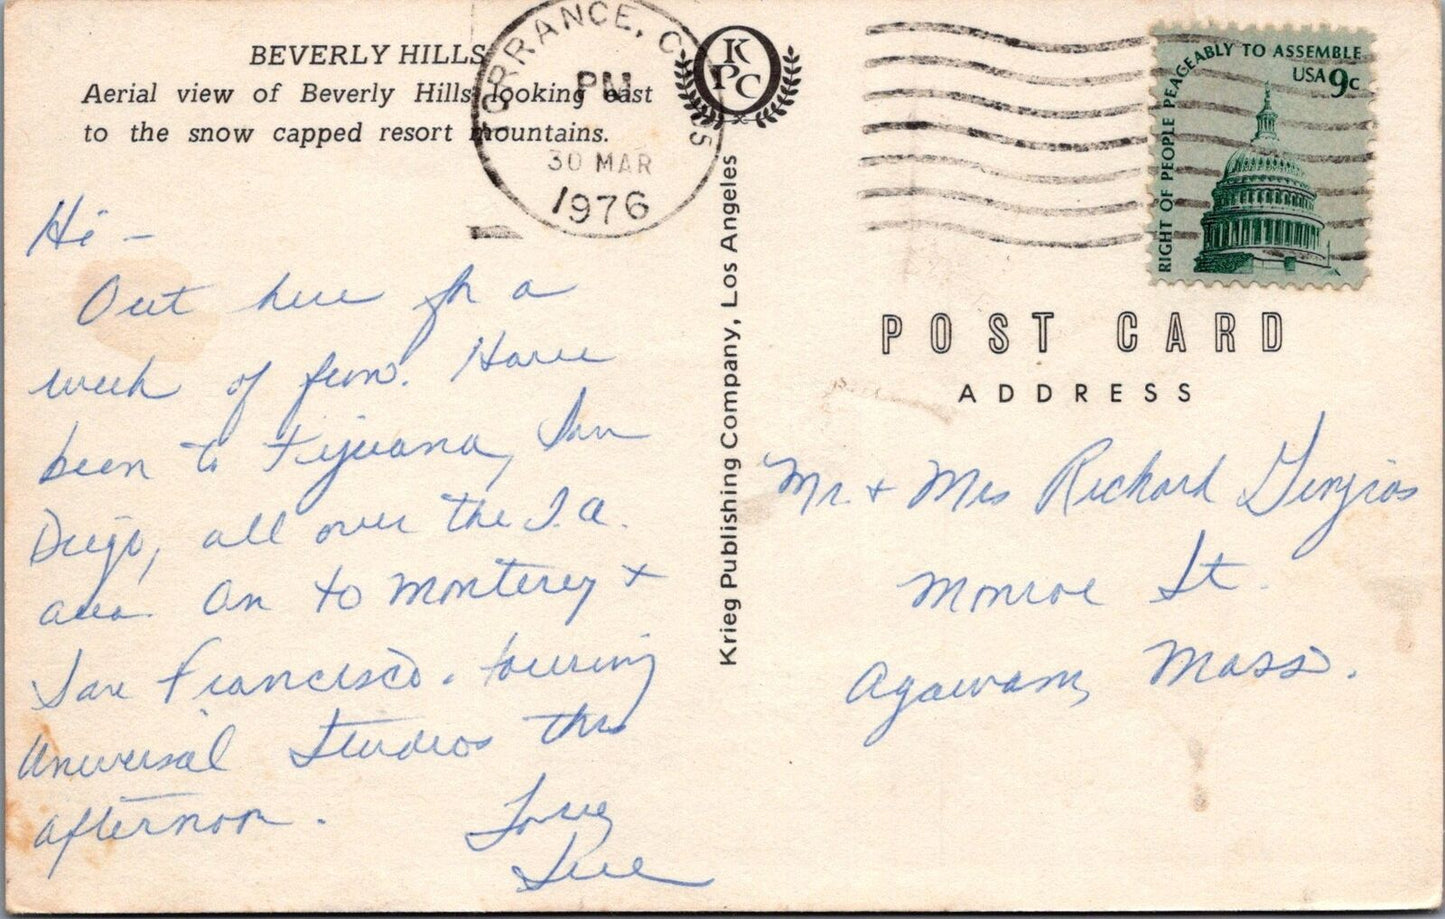 BEVERLY HILLS
Aerial view of Beverly Hills looking east
to the snow capped resort mountains.
TORRANCE, C
PM
30 MAR
1976
KPC
RIGHT OF PEOPLE PEACEABLY TO ASSEMBLE
USA 9c
Hi -
Out here for a
week of fun. Have
been to Tijuana, San
Diego, all over the L.A.
area. On to Monterey +
San Francisco. touring
Universal Studios this
afternoon.
Love,
Sue
Krieg Publishing Company, Los Angeles
POST CARD
ADDRESS
Mr. + Mrs Richard
Monroe St.
Agawam, Mass.